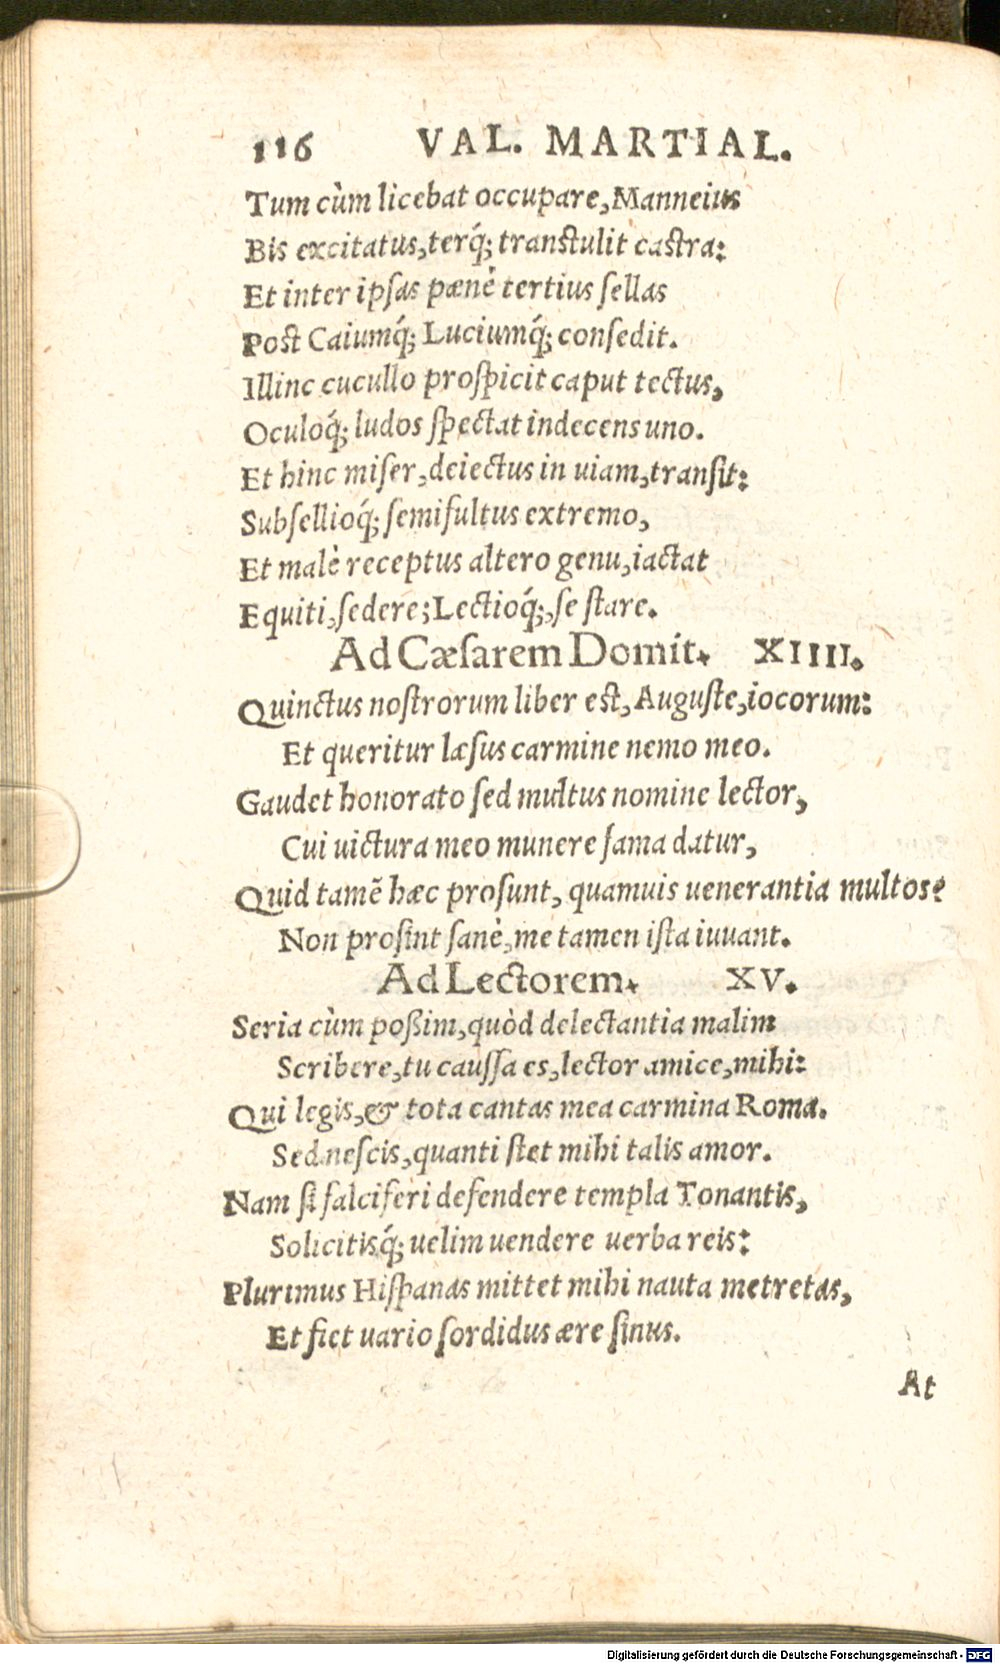 116 VAL. MARTIAL.
Tum cùm licebat occupare, Manneius
Bis excitatus, terq́; transtulit castra:
Et inter ipſas pænè tertius ſellas
Post Caiumq́; Luciumq́; conſedit.
Illinc cucullo proſpicit caput tectus,
Oculoq́; ludos ſpectat indecens uno.
Et hinc miſer, deiectus in uiam, tranſit:
Subſellioq́; ſemifultus extremo,
Et malè receptus altero genu, iactat
Equiti, ſedere; Lectioq́;, ſe ſtare.
Ad Cæſarem Domit. XIIII.
Quinctus noſtrorum liber est, Auguſte, iocorum:
Et queritur læſus carmine nemo meo.
Gaudet honorato ſed multus nomine lector,
Cui uictura meo munere fama datur,
Quid tamẽ hæc proſunt, quamuis uenerantia multos?
Non proſint ſanè, me tamen iſta iuuant.
Ad Lectorem. XV.
Seria cùm poßim, quòd delectantia malim
Scribere, tu cauſſa es, lector amice, mihi:
Qui legis, & tota cantas mea carmina Roma.
Sed neſcis, quanti ſtet mihi talis amor.
Nam ſi falciferi defendere templa Tonantis,
Solicitisq́; uelim uendere uerba reis:
Plurimus Hiſpanas mittet mihi nauta metretas,
Et fiet uario ſordidus ære ſinus.
At
Digitalisierung gefördert durch die Deutsche Forschungsgemeinschaft - DFG